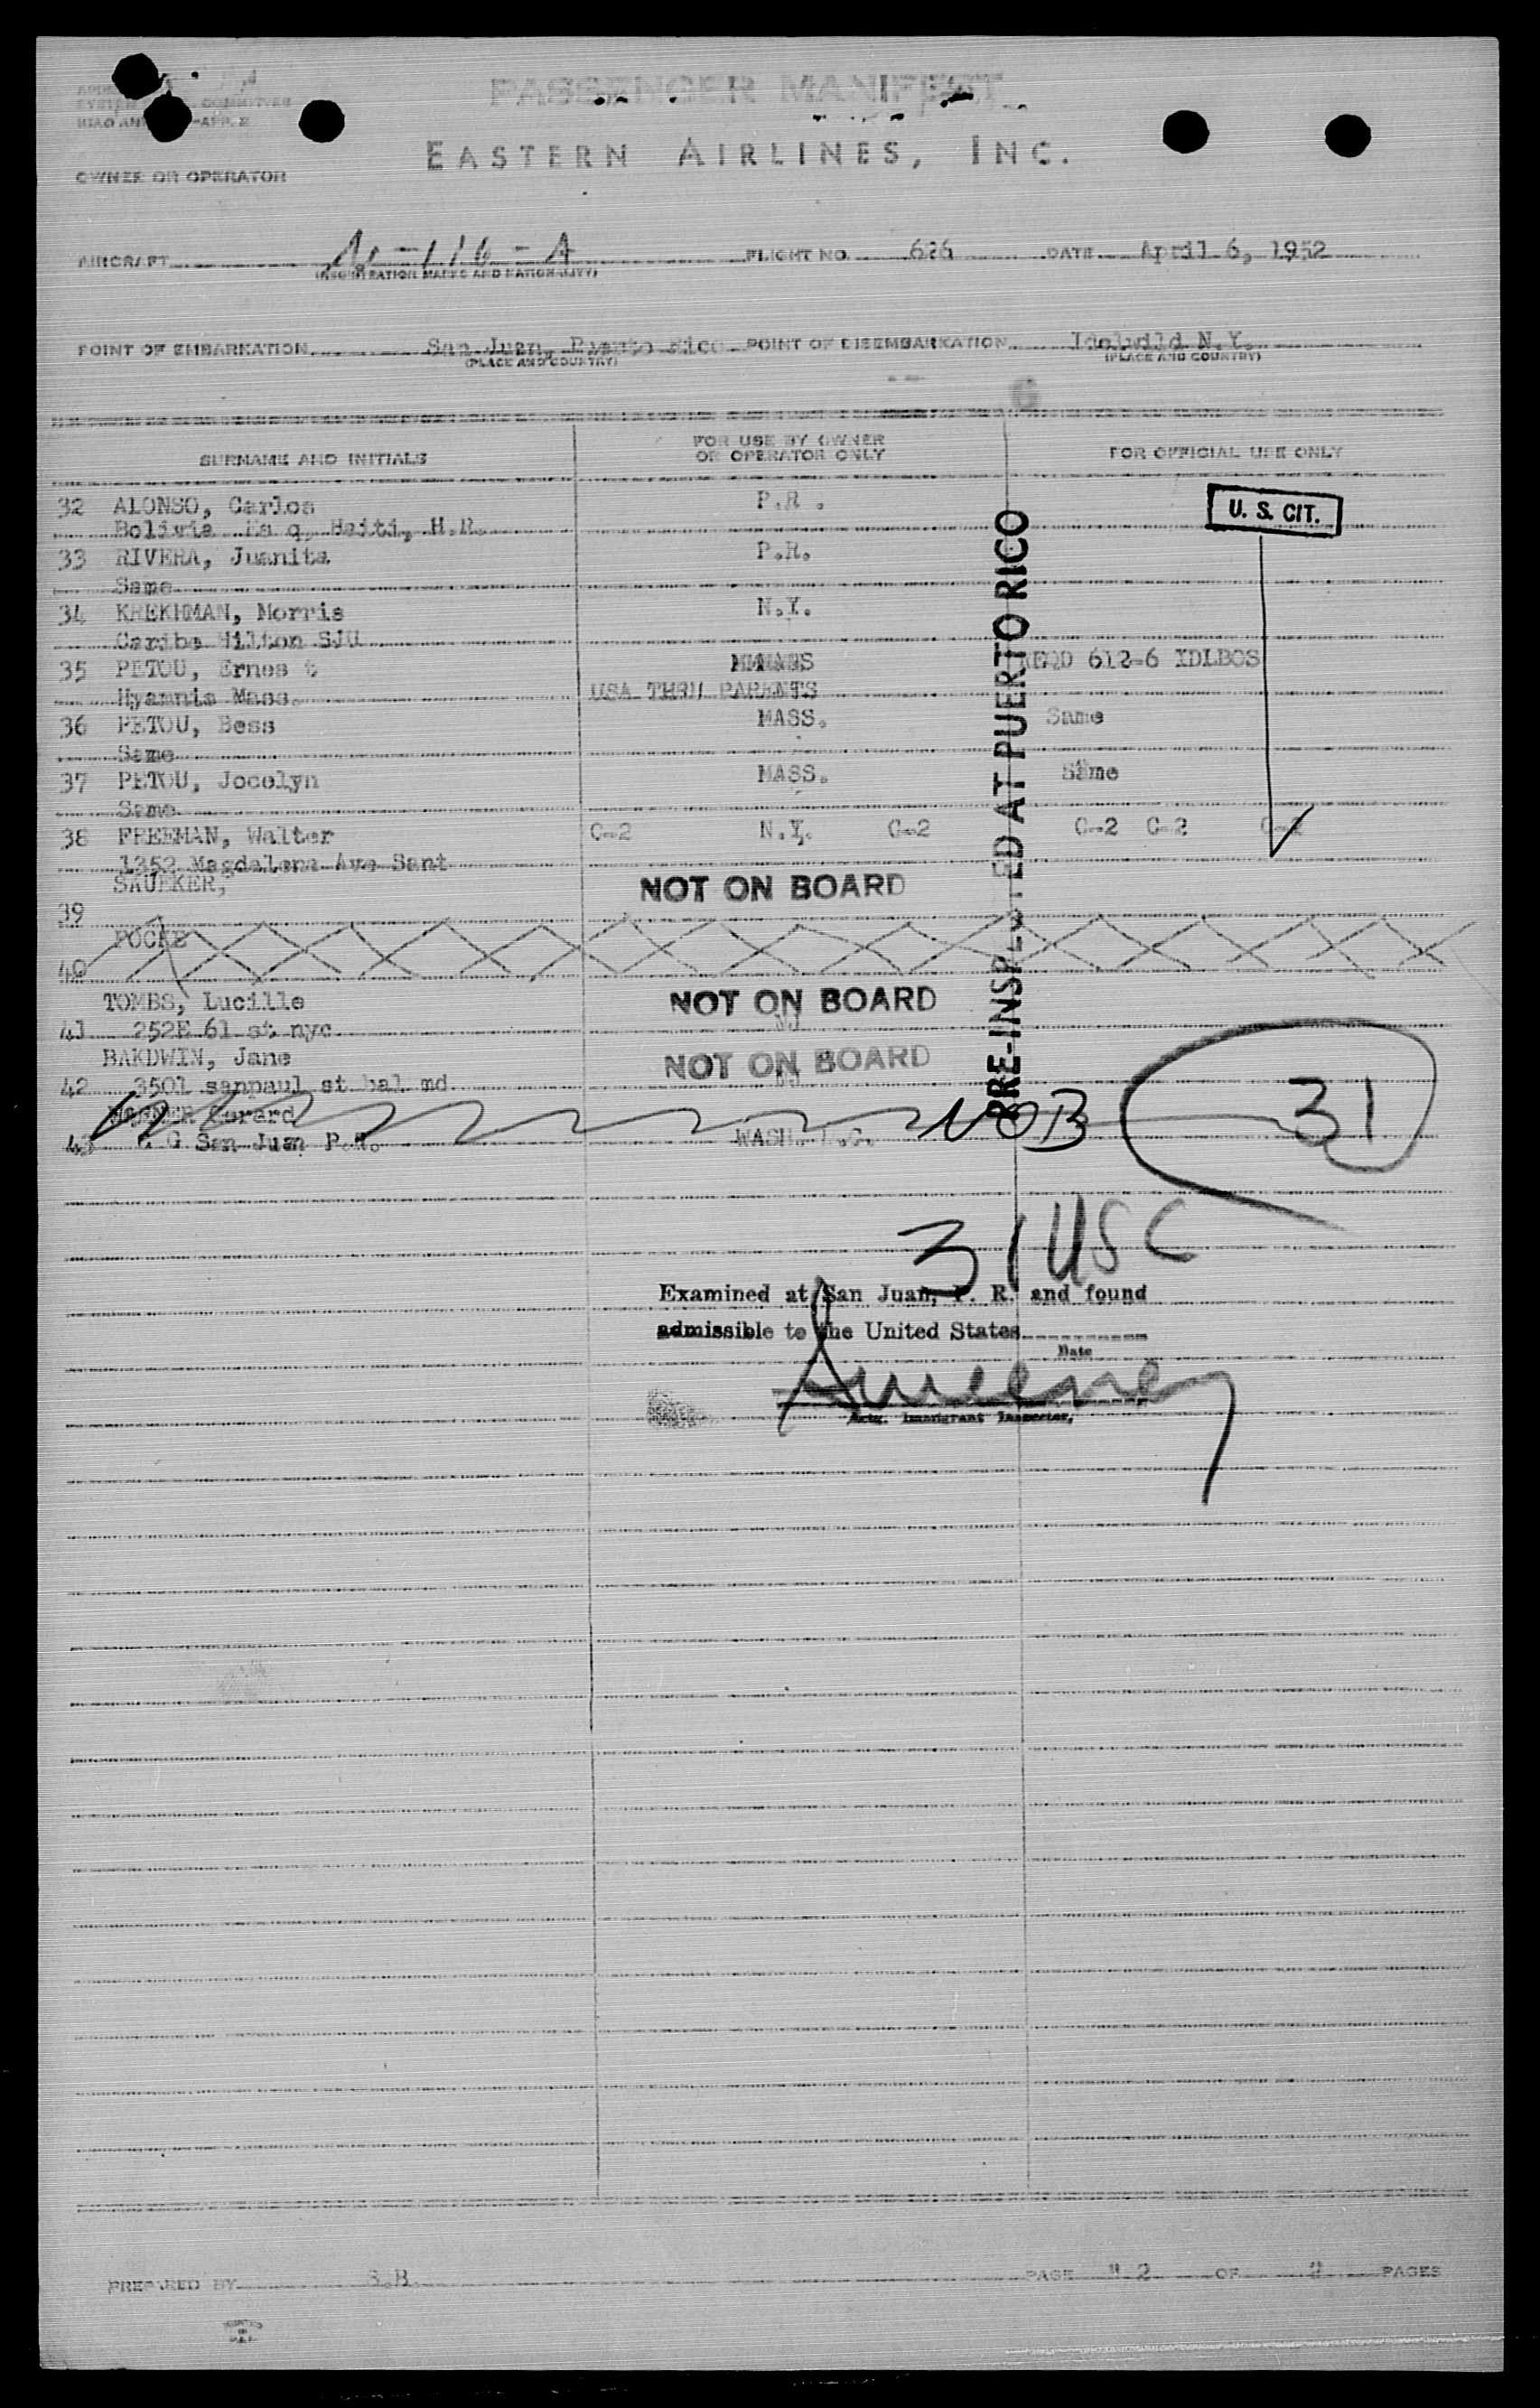 PASSENGER MANIFEST
EASTERN AIRLINES, INC.
OWNER OR OPERATOR
AIRCRAFT N-116-A FLIGHT NO. 626 DATE April 6, 1952
(REGISTRATION MARKS AND NATIONALITY)
POINT OF EMBARKATION San Juan, Puerto Rico POINT OF DISEMBARKATION Idelwild N.Y.
(PLACE AND COUNTRY) (PLACE AND COUNTRY)
6
SURNAME AND INITIALS FOR USE BY OWNER OR OPERATOR ONLY FOR OFFICIAL USE ONLY
32 ALONSO, Carlos P.R. U. S. CIT.
Bolivia Esq. Haiti, H.R.
33 RIVERA, Juanita P.R.
Same
34 KREKHMAN, Morris N.Y.
Caribe Hilton SJU
35 PETOU, Ernes t MASS REQD 612-6 IDLBOS
Hyannis Mass. USA THRU PARENTS
36 PETOU, Bess MASS. Same
Same
37 PETOU, Jocelyn MASS. Same
Same
38 FREEMAN, Walter C-2 N.Y. C-2 C-2 C-2 C-2
1352 Magdalena Ave Sant
SAUEKER, NOT ON BOARD
39
POCKE
40
TOMBS, Lucille NOT ON BOARD
41 252E 61 st nyc
BAKDWIN, Jane NOT ON BOARD
42 3501 sanpaul st bal md
Gerard
43 San Juan P.R. WASH. D.C. NOB 31
PRE-INSPECTED AT PUERTO RICO
31 USC
Examined at San Juan, P. R. and found
admissible to the United States
Date
Sweeney
Actg. Immigrant Inspector,
PREPARED BY S.B. PAGE 2 OF 2 PAGES